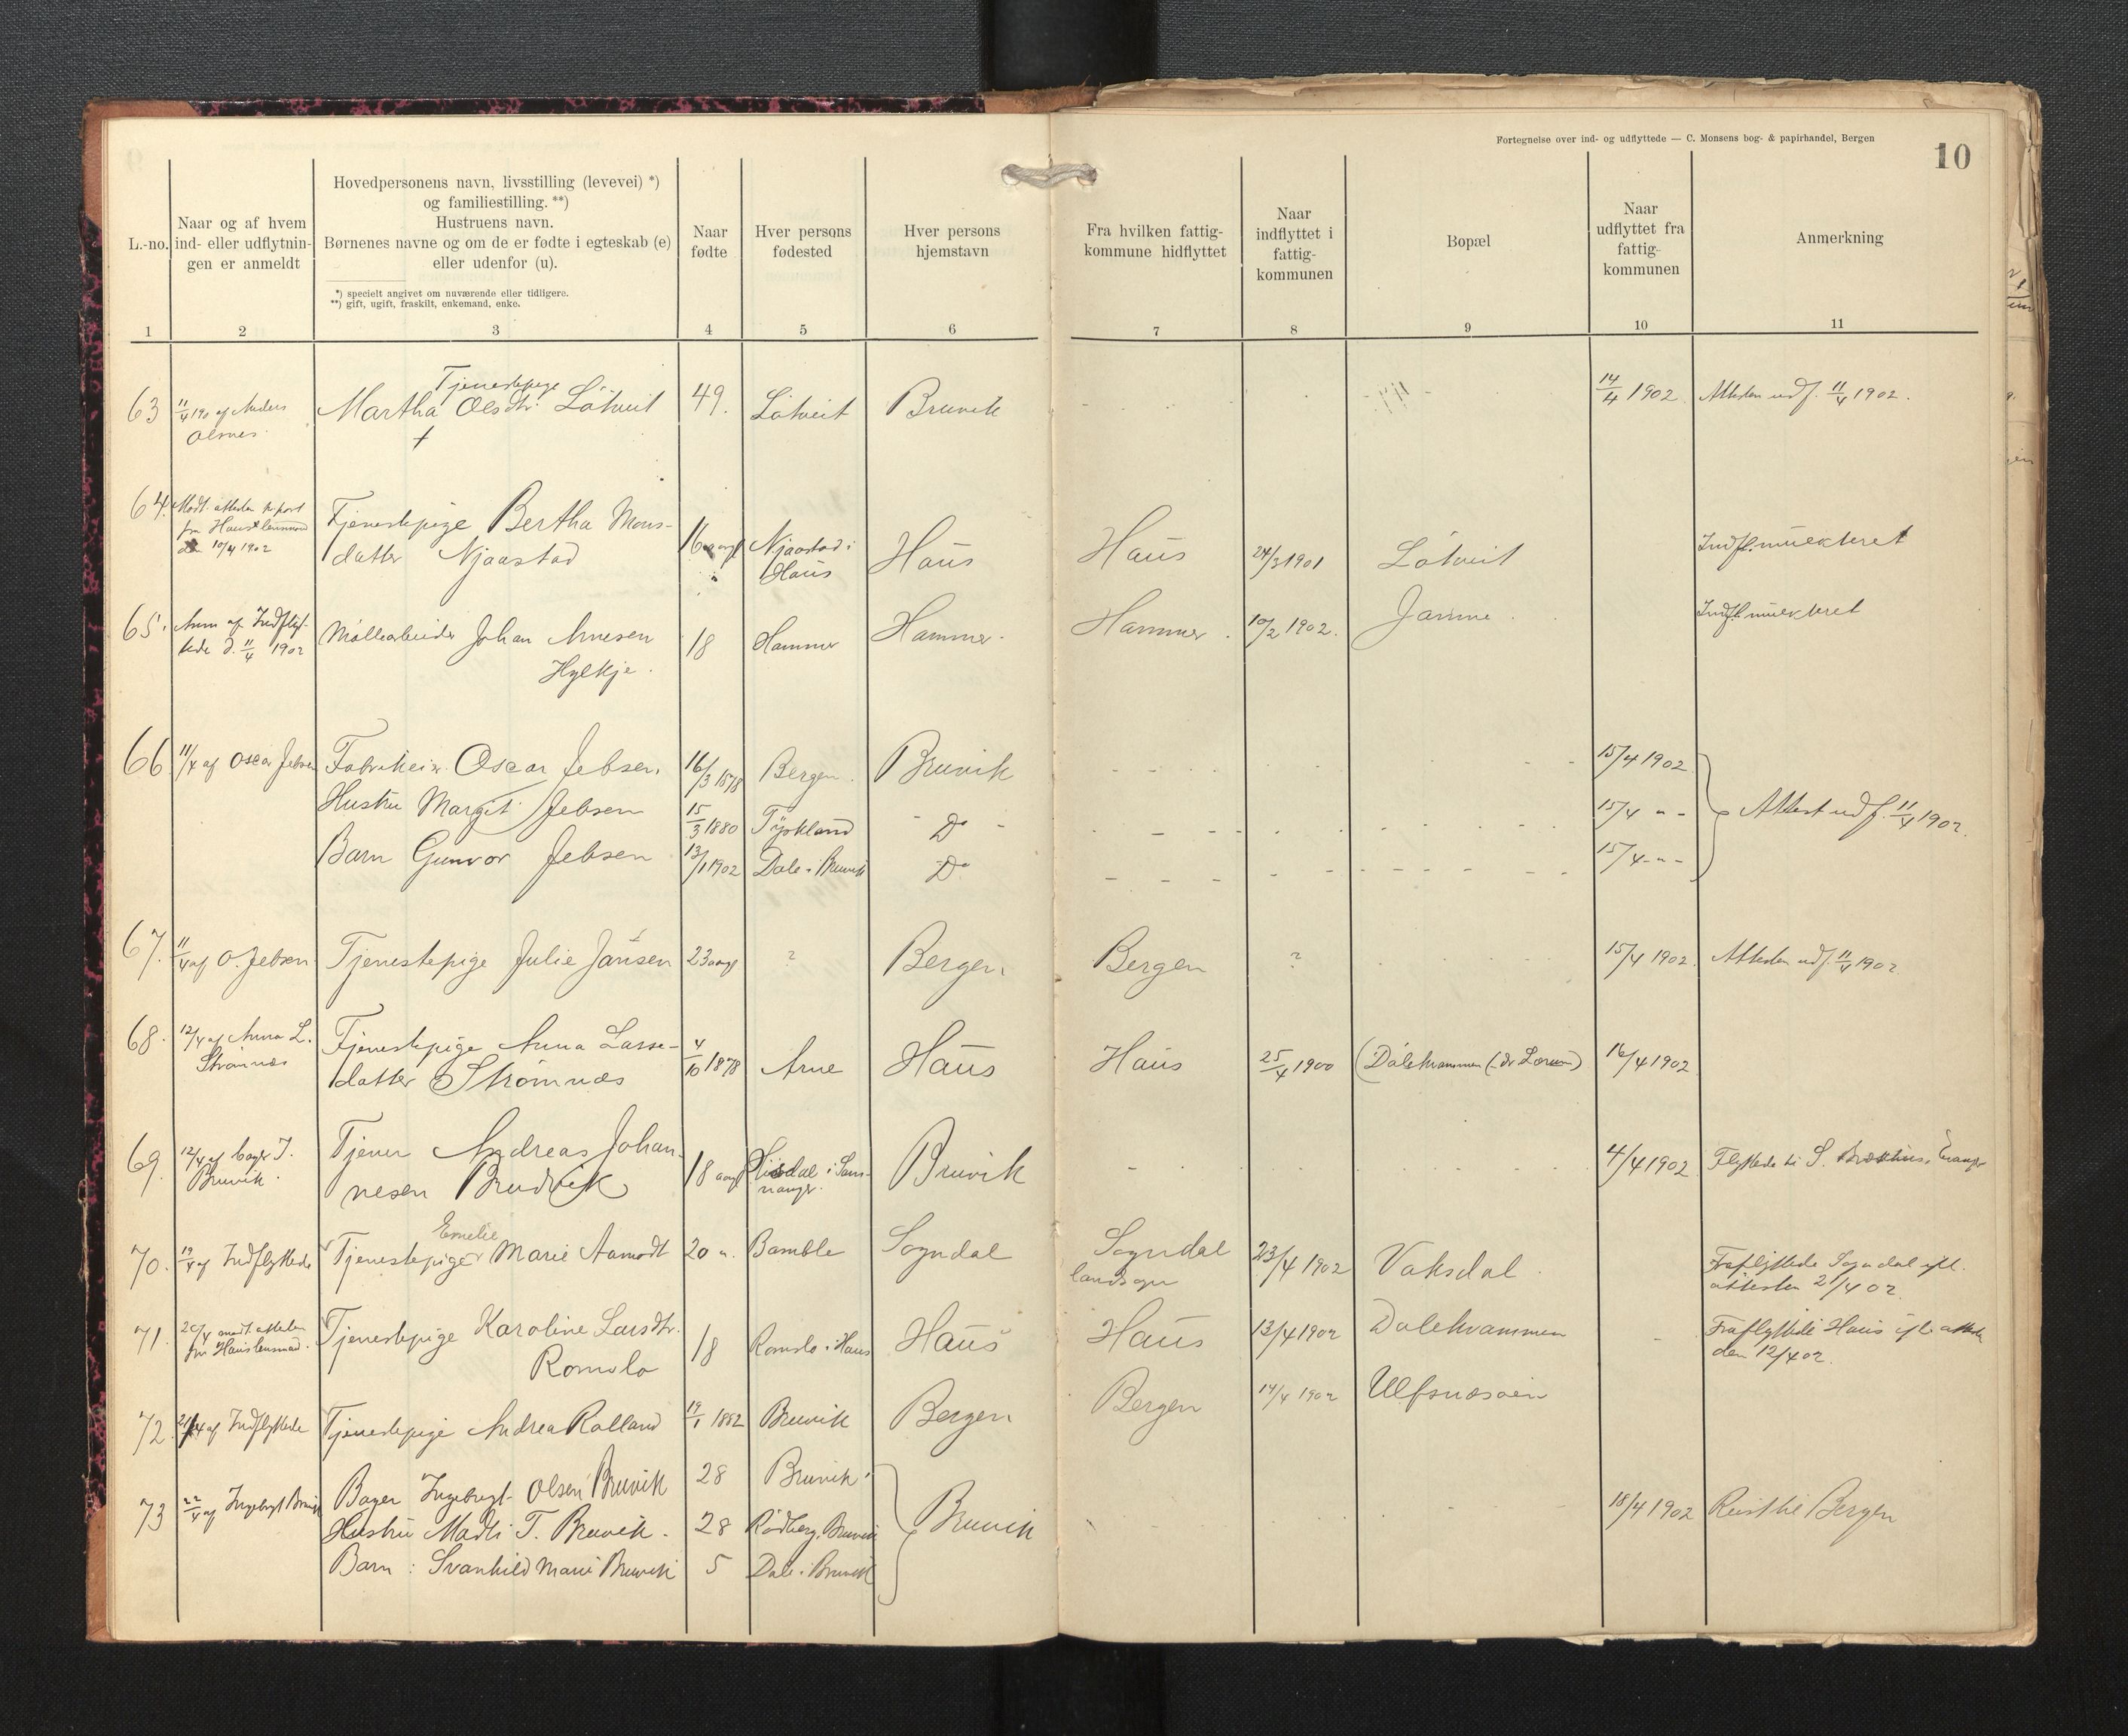 Fortegnelse over ind- og udflyttede — C. Monsens bog- & papirhandel, Bergen
10
L.-no.
Naar og af hvem
ind- eller udflytnin-
gen er anmeldt
Hovedpersonens navn, livsstilling (levevei) *)
og familiestilling. **)
Hustruens navn.
Børnenes navne og om de er fødte i egteskab (e)
eller udenfor (u).
*) specielt angivet om nuværende eller tidligere.
**) gift, ugift, fraskilt, enkemand, enke.
Naar
fødte
Hver persons
fødested
Hver persons
hjemstavn
Fra hvilken fattig-
kommune hidflyttet
Naar
indflyttet i
fattig-
kommunen
Bopæl
Naar
udflyttet fra
fattig-
kommunen
Anmerkning
1 2 3 4 5 6 7 8 9 10 11
Tjenestepige
63 11/4 190 af Anders Martha Olsdtr. Lötveit 49. Lötveit Bruvik 14/4 1902 Attesten udf. 11/4 1902.
Olsnes
64. Modt. attesten pr post Tjenestepige Bertha Mons-
fra Hauslensmand
den 10/4 1902 datter Njaastad 16 aar gl Njaastad i Haus Haus 24/3 1901 Lötveit Indfl. mulkteret
Haus
65. Anm af Indflyt- Möllearbeider Johan Arnesen 18 Hammer Hammer Hammer 10/2 1902. Jamne Indfl. mulkteret
tede d. 11/4 1902
Hylkje.
66 11/4 af Oscar Jebsen Fabrikeier Oscar Jebsen 16/3 1878 Bergen Bruvik 15/4 1902
Hustru Margit Jebsen 15/3 1880 Tyskland Do 15/4 - - Attest udf. 11/4 1902.
Barn Gunvor Jebsen 13/1 1902 Dale i Bruvik Do 15/4 - " -
67. 11/4 af O. Jebsen Tjenestepige Julie Jansen 23 aargl ? Bergen Bergen ? 15/4 1902. Attesten udf. 11/4 1902
68. 12/4 af Anna L. Tjenestepige Anna Lasse-
Strømnæs datter Strömnæs 4/10 1878 Arne Haus Haus 25/4 1900 Dalekvammen 16/4 1902
69. 12/4 af bager I. Tjener Andreas Johan-
Bruvik nesen Brudvik 18 aargl i Sam- Bruvik 4/4 1902 Flyttede til S.
nanger
Emelie
70. 19/4 af Indflyttede Tjenestepige Marie Aamodt 20 " Bamble Sogndal Sogndal 23/4 1902 Vaksdal Fraflyttede Sogndal ifl.
landsogn attesten 21/4 02
71. 20/4 modt. attesten Tjenestepige Karoline Larsdtr. 18 Romslo i Haus Haus Haus 13/4 1902 Dalekvammen Fraflyttede Haus ifl. attest
fra Hauslensmand. Romslo den 12/4 02.
72. 21/4 af Indflyttede Tjenestepige Andrea Rolland 19/1 1882 Bruvik Bergen Bergen 14/4 1902 Ulfsnæsøen
73 22/4 af Ingebrigt Bruvik Bager Ingebrigt Olsen Bruvik 28 Bruvik
Hustru Madli T. Bruvik. 28 Rödberg, Bruvik Bruvik 18/4 1902 Reist til Bergen
Barn: Svanhild Marie Bruvik 5 Dale i Bruvik